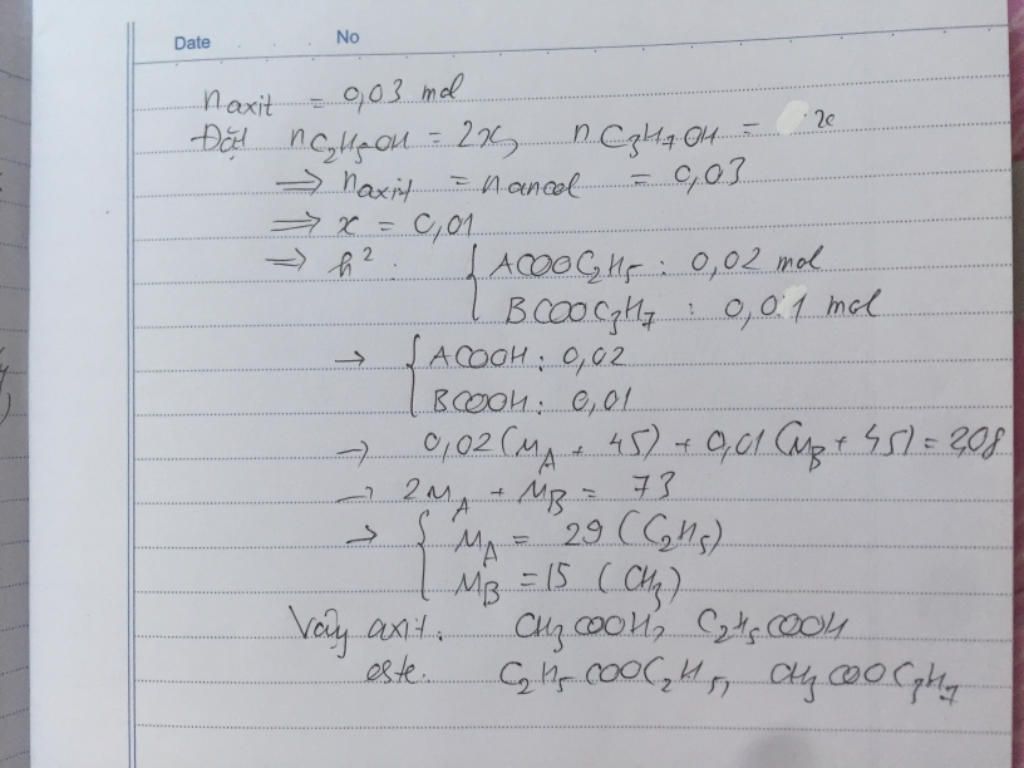 Date No
n axit = 0,03 mol
Đặt n C2H5OH = 2x, n C3H7OH = x
⇒ n axit = n ancol = 0,03
⇒ x = 0,01
⇒ h²: { ACOOC2H5 : 0,02 mol
BCOOC3H7 : 0,01 mol
→ { ACOOH : 0,02
BCOOH : 0,01
→ 0,02(MA + 45) + 0,01(MB + 45) = 2,08
→ 2MA + MB = 73
→ { MA = 29 (C2H5)
MB = 15 (CH3)
Vậy axit: CH3COOH, C2H5COOH
este: C2H5COOC2H5, CH3COOC3H7